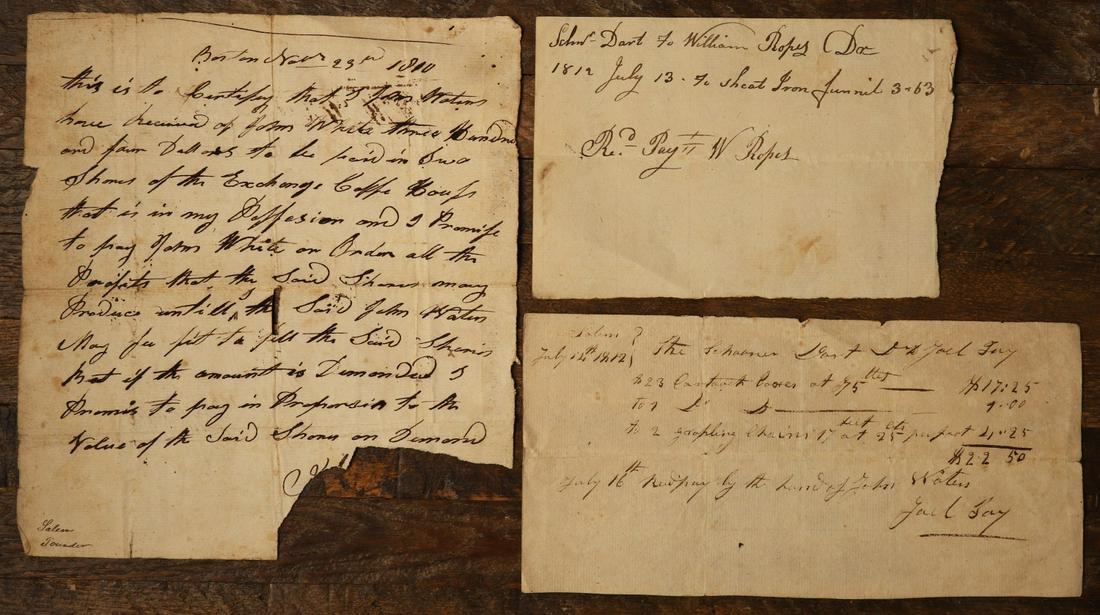 Boston Novr 23rd 1810
this is to Certifey that I John Waters
have received of John White three Hundred
and four Dollars to be paid in two
Shares of the Exchange Coffe House
that is in my Possesion and I Promise
to pay John White on Order all the
Profits that the Said Shares may
Produce untill the Said John Waters
May see fit to sell the Said Shares
but if the amount is Demanded I
Promis to pay in Proporsion to the
Value of the Said Shares on Demand
Salem
Schnr Dart to William Ropes Dr
1812 July 13 - to Sheat Iron funnil 3-63
Recd Payt W Ropes
Salem
July 14th 1812
The Schooner Dart Dr to Joel Fay
at 75 cts $17:25
to 2 grapling Chains 17 feet at 25 cts per feet 4.25
$22 50
July 16th Recd pay by the hand of John Waters
Joel Fay